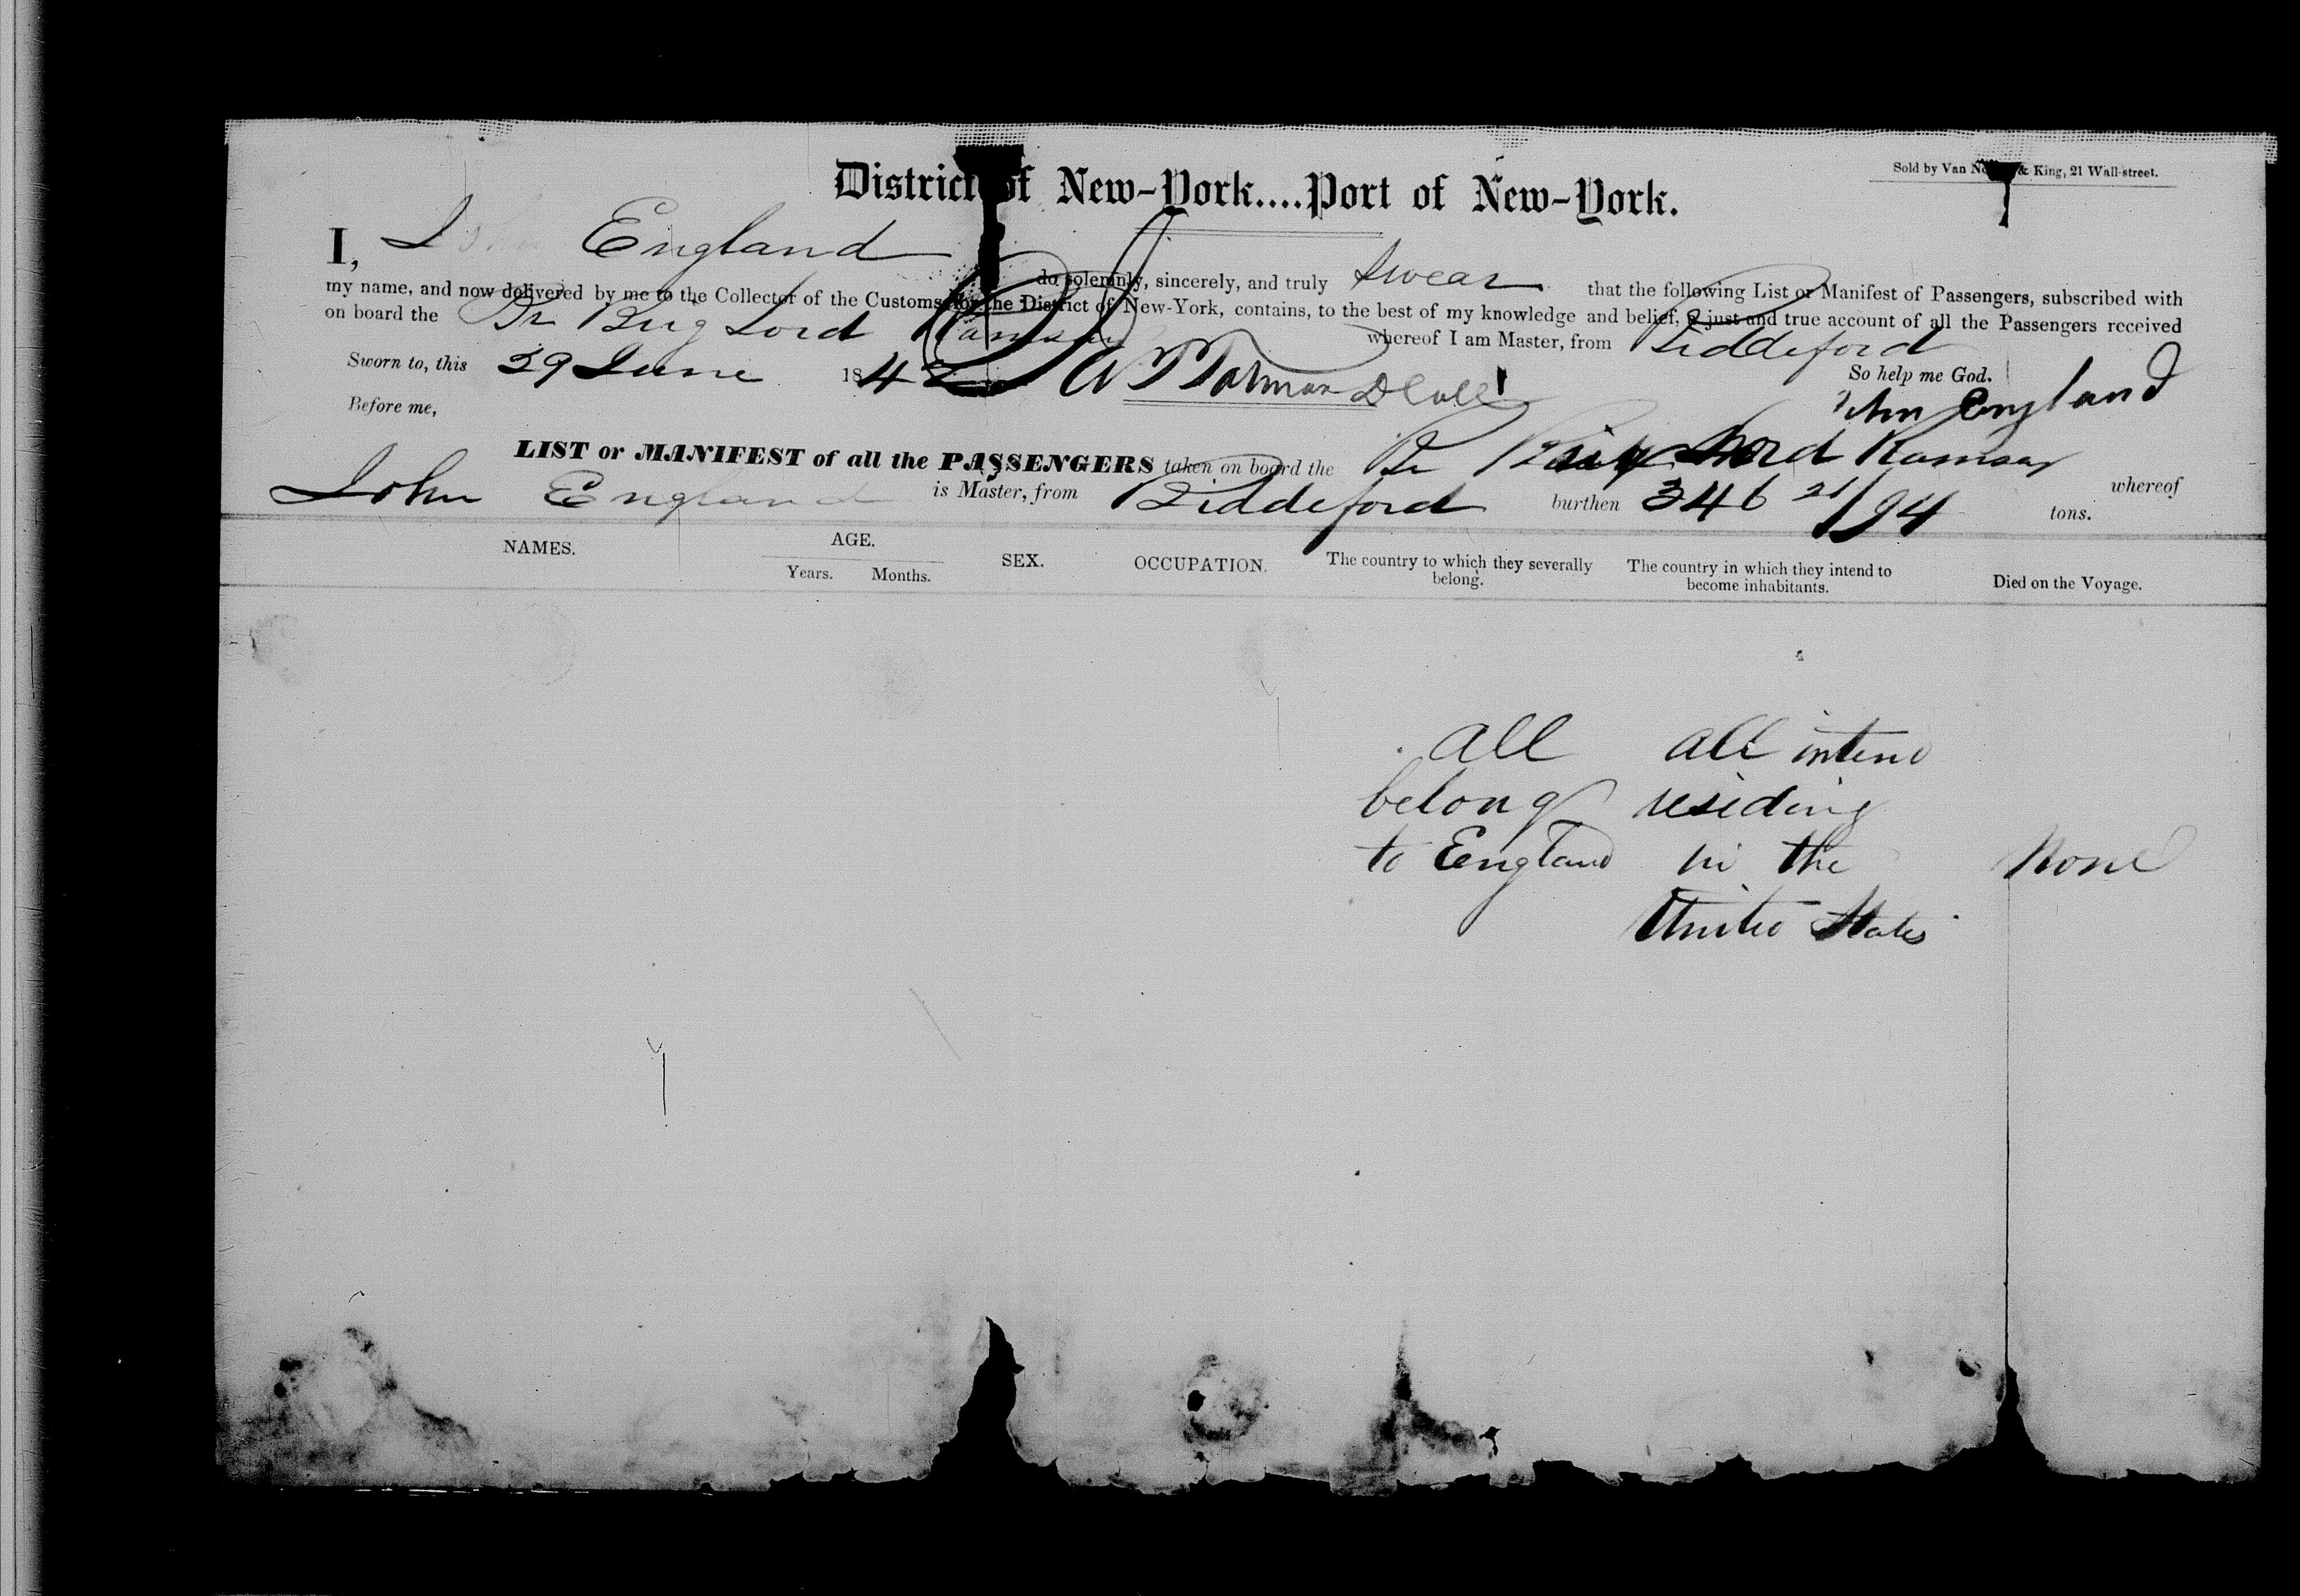 District of New-York....Port of New-York.
Sold by Van & King, 21 Wall-street.
I, John England do solemnly, sincerely, and truly swear that the following List or Manifest of Passengers, subscribed with
my name, and now delivered by me to the Collector of the Customs for the District of New-York, contains, to the best of my knowledge and belief, a just and true account of all the Passengers received
on board the Br Brig Lord Ramsay whereof I am Master, from Biddeford
Sworn to, this 29 June 1842 So help me God.
Before me, John England
LIST or MANIFEST of all the PASSENGERS taken on board the Br Brig Lord Ramsay whereof
John England is Master, from Biddeford burthen 346 21/94 tons.
NAMES. AGE. SEX. OCCUPATION. The country to which they severally belong. The country in which they intend to become inhabitants. Died on the Voyage.
Years. Months.
all all intend
belong residing
to England in the None
United States